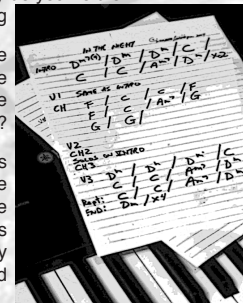 g
e
e
e
?
s
e
s
y
d
IN THE NIGHT
INTRO Dm7(9) / Dm / Dm / C /
C / C / Am7 / Dm / x2
V1 SAME AS INTRO
CH F / C / C / F
F / F / Am7 / G
G / G /
V2
CH2
SOLOS ON INTRO
CH3
V3 Dm / Dm / Dm / C
C / C / Am7 / Dm
Rept: C / C / Am7 / Dm
END: Dm / x4